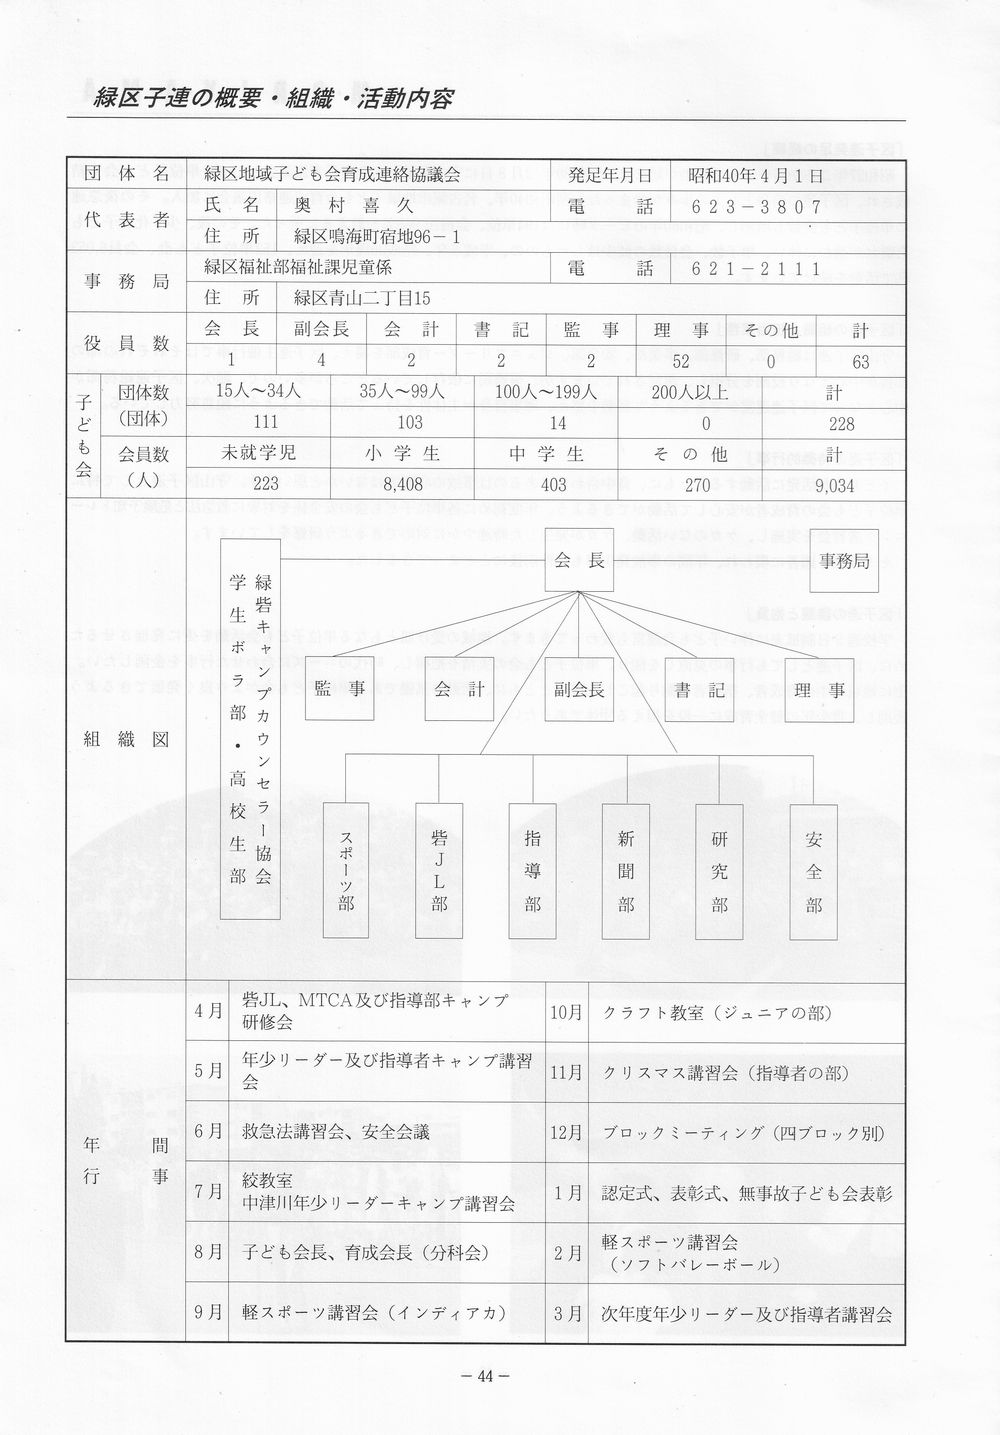 緑区子連の概要・組織・活動内容
団体名 緑区地域子ども会育成連絡協議会 発足年月日 昭和40年4月1日
代表者 氏名 奥村喜久 電話 623－3807
住所 緑区鳴海町宿地96－1
事務局 緑区福祉部福祉課児童係 電話 621－2111
住所 緑区青山二丁目15
役員数 会長 副会長 会計 書記 監事 理事 その他 計
1 4 2 2 2 52 0 63
子ども会 団体数(団体) 15人～34人 35人～99人 100人～199人 200人以上 計
111 103 14 0 228
会員数(人) 未就学児 小学生 中学生 その他 計
223 8,408 403 270 9,034
組織図
会長
事務局
緑砦キャンプカウンセラー協会
学生ボラ部・高校生部
監事 会計 副会長 書記 理事
スポーツ部 砦JL部 指導部 新聞部 研究部 安全部
年間行事
4月 砦JL、MTCA及び指導部キャンプ
研修会
10月 クラフト教室（ジュニアの部）
5月 年少リーダー及び指導者キャンプ講習
会
11月 クリスマス講習会（指導者の部）
6月 救急法講習会、安全会議
12月 ブロックミーティング（四ブロック別）
7月 絞教室
中津川年少リーダーキャンプ講習会
1月 認定式、表彰式、無事故子ども会表彰
8月 子ども会長、育成会長（分科会）
2月 軽スポーツ講習会
（ソフトバレーボール）
9月 軽スポーツ講習会（インディアカ）
3月 次年度年少リーダー及び指導者講習会
－44－